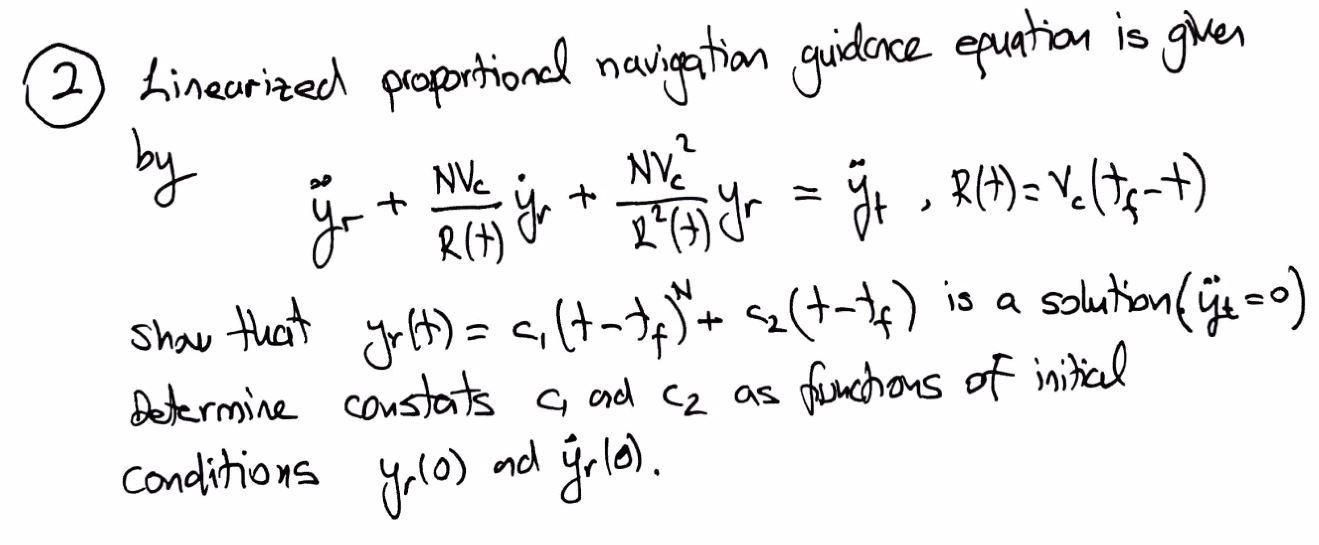 ② Linearized proportional navigation guidance equation is given
by ÿr + NVc/R(t) ẏr + NVc²/R²(t) yr = ÿt , R(t) = Vc(tf-t)
show that yr(t) = c₁(t-tf)^N + c₂(t-tf) is a solution (ÿt=0)
Determine constats c₁ ad c₂ as functions of initial
conditions yr(0) ad ẏr(0).